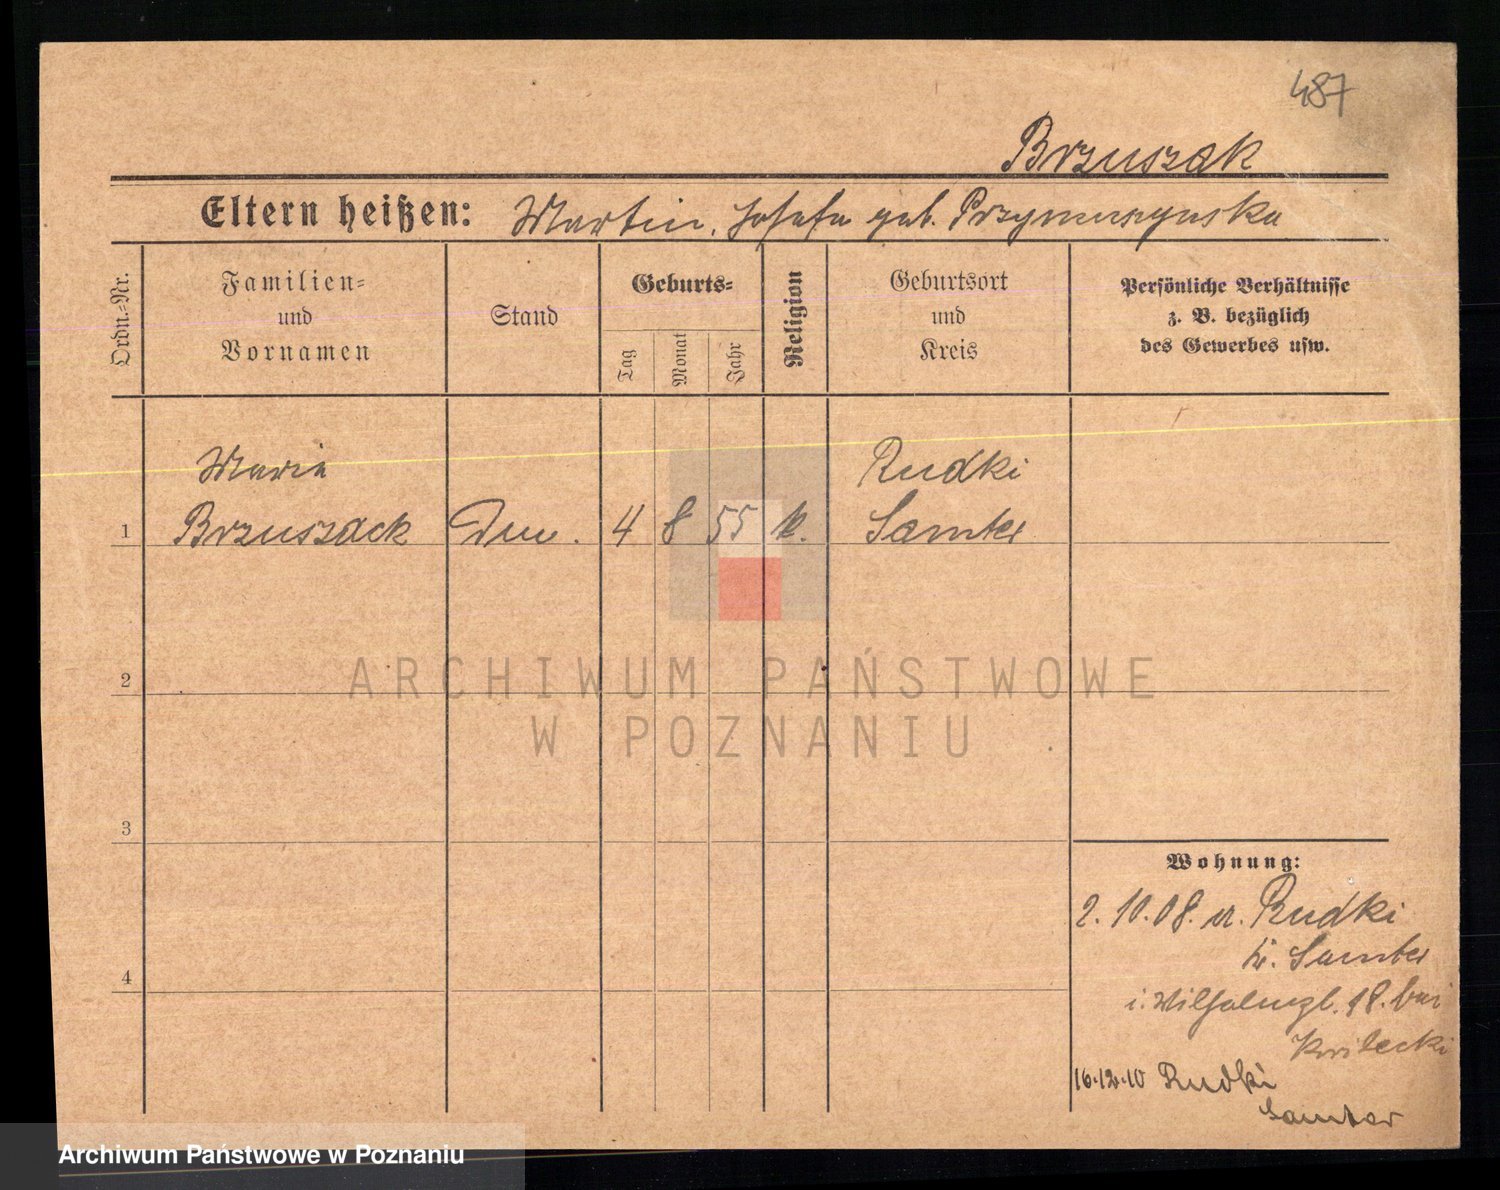 487
Brzuszak
Eltern heißen: Martin, Josefa geb.
Ordn.-Nr.
Familien-
und
Vornamen
Stand
Geburts-
Tag
Monat
Jahr
Religion
Geburtsort
und
Kreis
Persönliche Verhältnisse
z. B. bezüglich
des Gewerbes usw.
Maria
Rudki
1 Brzuszack 4 8 55 k. Samter
2
ARCHIWUM PAŃSTWOWE
W POZNANIU
3
Wohnung:
2.10.08. Rudki
Samter
4
i. 18. bei
Kwilecki
16.12.10 Rudki
Samter
Archiwum Państwowe w Poznaniu